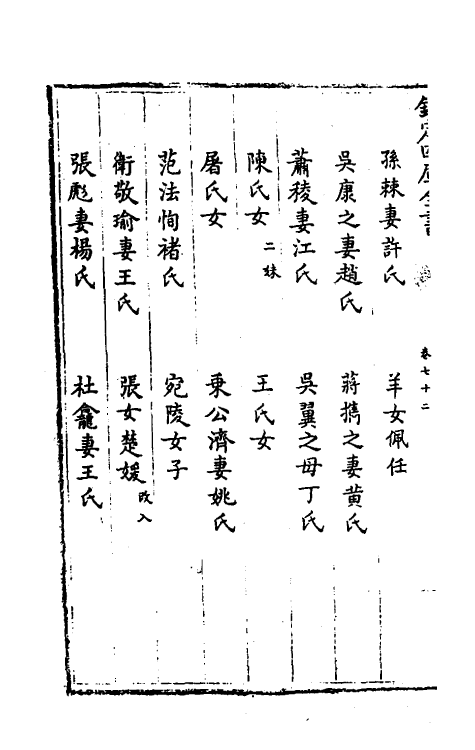 欽定四庫全書
卷七十二
孫棘妻許氏　羊女佩任
吳康之妻趙氏　蔣擕之妻黄氏
蕭稜妻江氏　吳翼之母丁氏
陳氏女二妹　王氏女
屠氏女　乗公濟妻姚氏
范法恂禇氏　宛陵女子
衛敬瑜妻王氏　張女楚媛改入
張彪妻楊氏　杜龕妻王氏